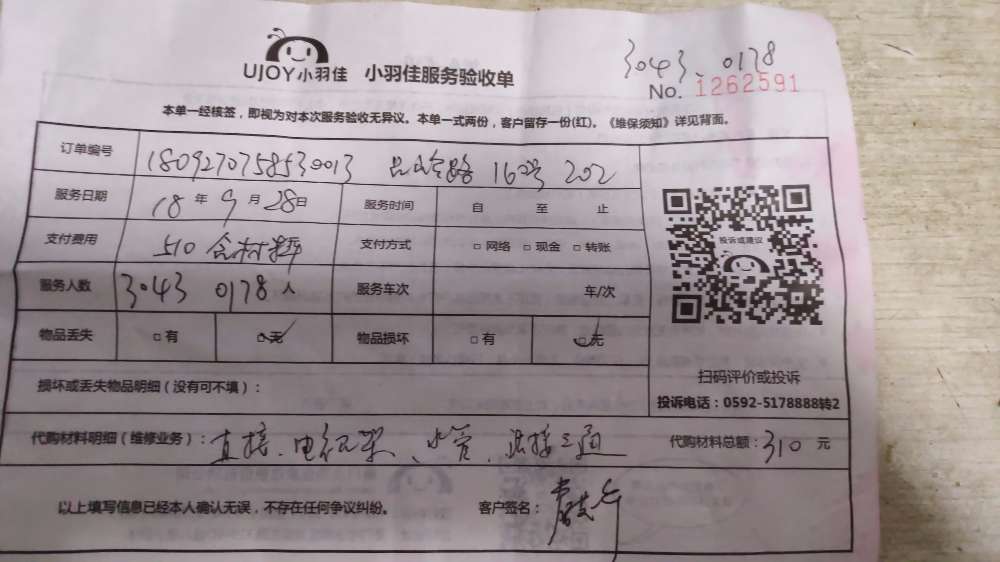 3043、0178
UJOY小羽佳 小羽佳服务验收单
No. 1262591
本单一经核签，即视为对本次服务验收无异议。本单一式两份，客户留存一份(红)。《维保须知》详见背面。
订单编号 180927075853 0013 路 16号 202
服务日期 18 年 9 月 28 日 服务时间 自 至 止
支付费用 510 含材料 支付方式 □ 网络 □ 现金 □ 转账
服务人数 3043 0178 人 服务车次 车/次
物品丢失 □ 有 □ 无 物品损坏 □ 有 □ 无
投诉或建议
扫码评价或投诉
投诉电话：0592-5178888转2
损坏或丢失物品明细（没有可不填）：
代购材料明细（维修业务）：直接、水管、三通 代购材料总额：310 元
以上填写信息已经本人确认无误，不存在任何争议纠纷。 客户签名：